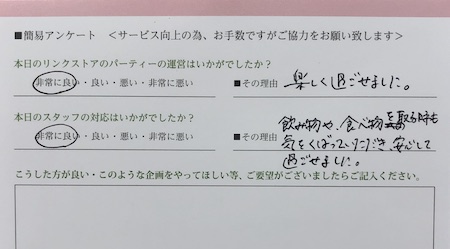 ■簡易アンケート ＜サービス向上の為、お手数ですがご協力をお願い致します＞
本日のリンクストアのパーティーの運営はいかがでしたか？
非常に良い・良い・悪い・非常に悪い ■その理由 楽しく過ごせました。
本日のスタッフの対応はいかがでしたか？
非常に良い・良い・悪い・非常に悪い ■その理由 飲み物や、食べ物を取る時も
気をくばっていただき、安心して
過ごせました。
こうした方が良い・このような企画をやってほしい等、ご要望がございましたらご記入ください。